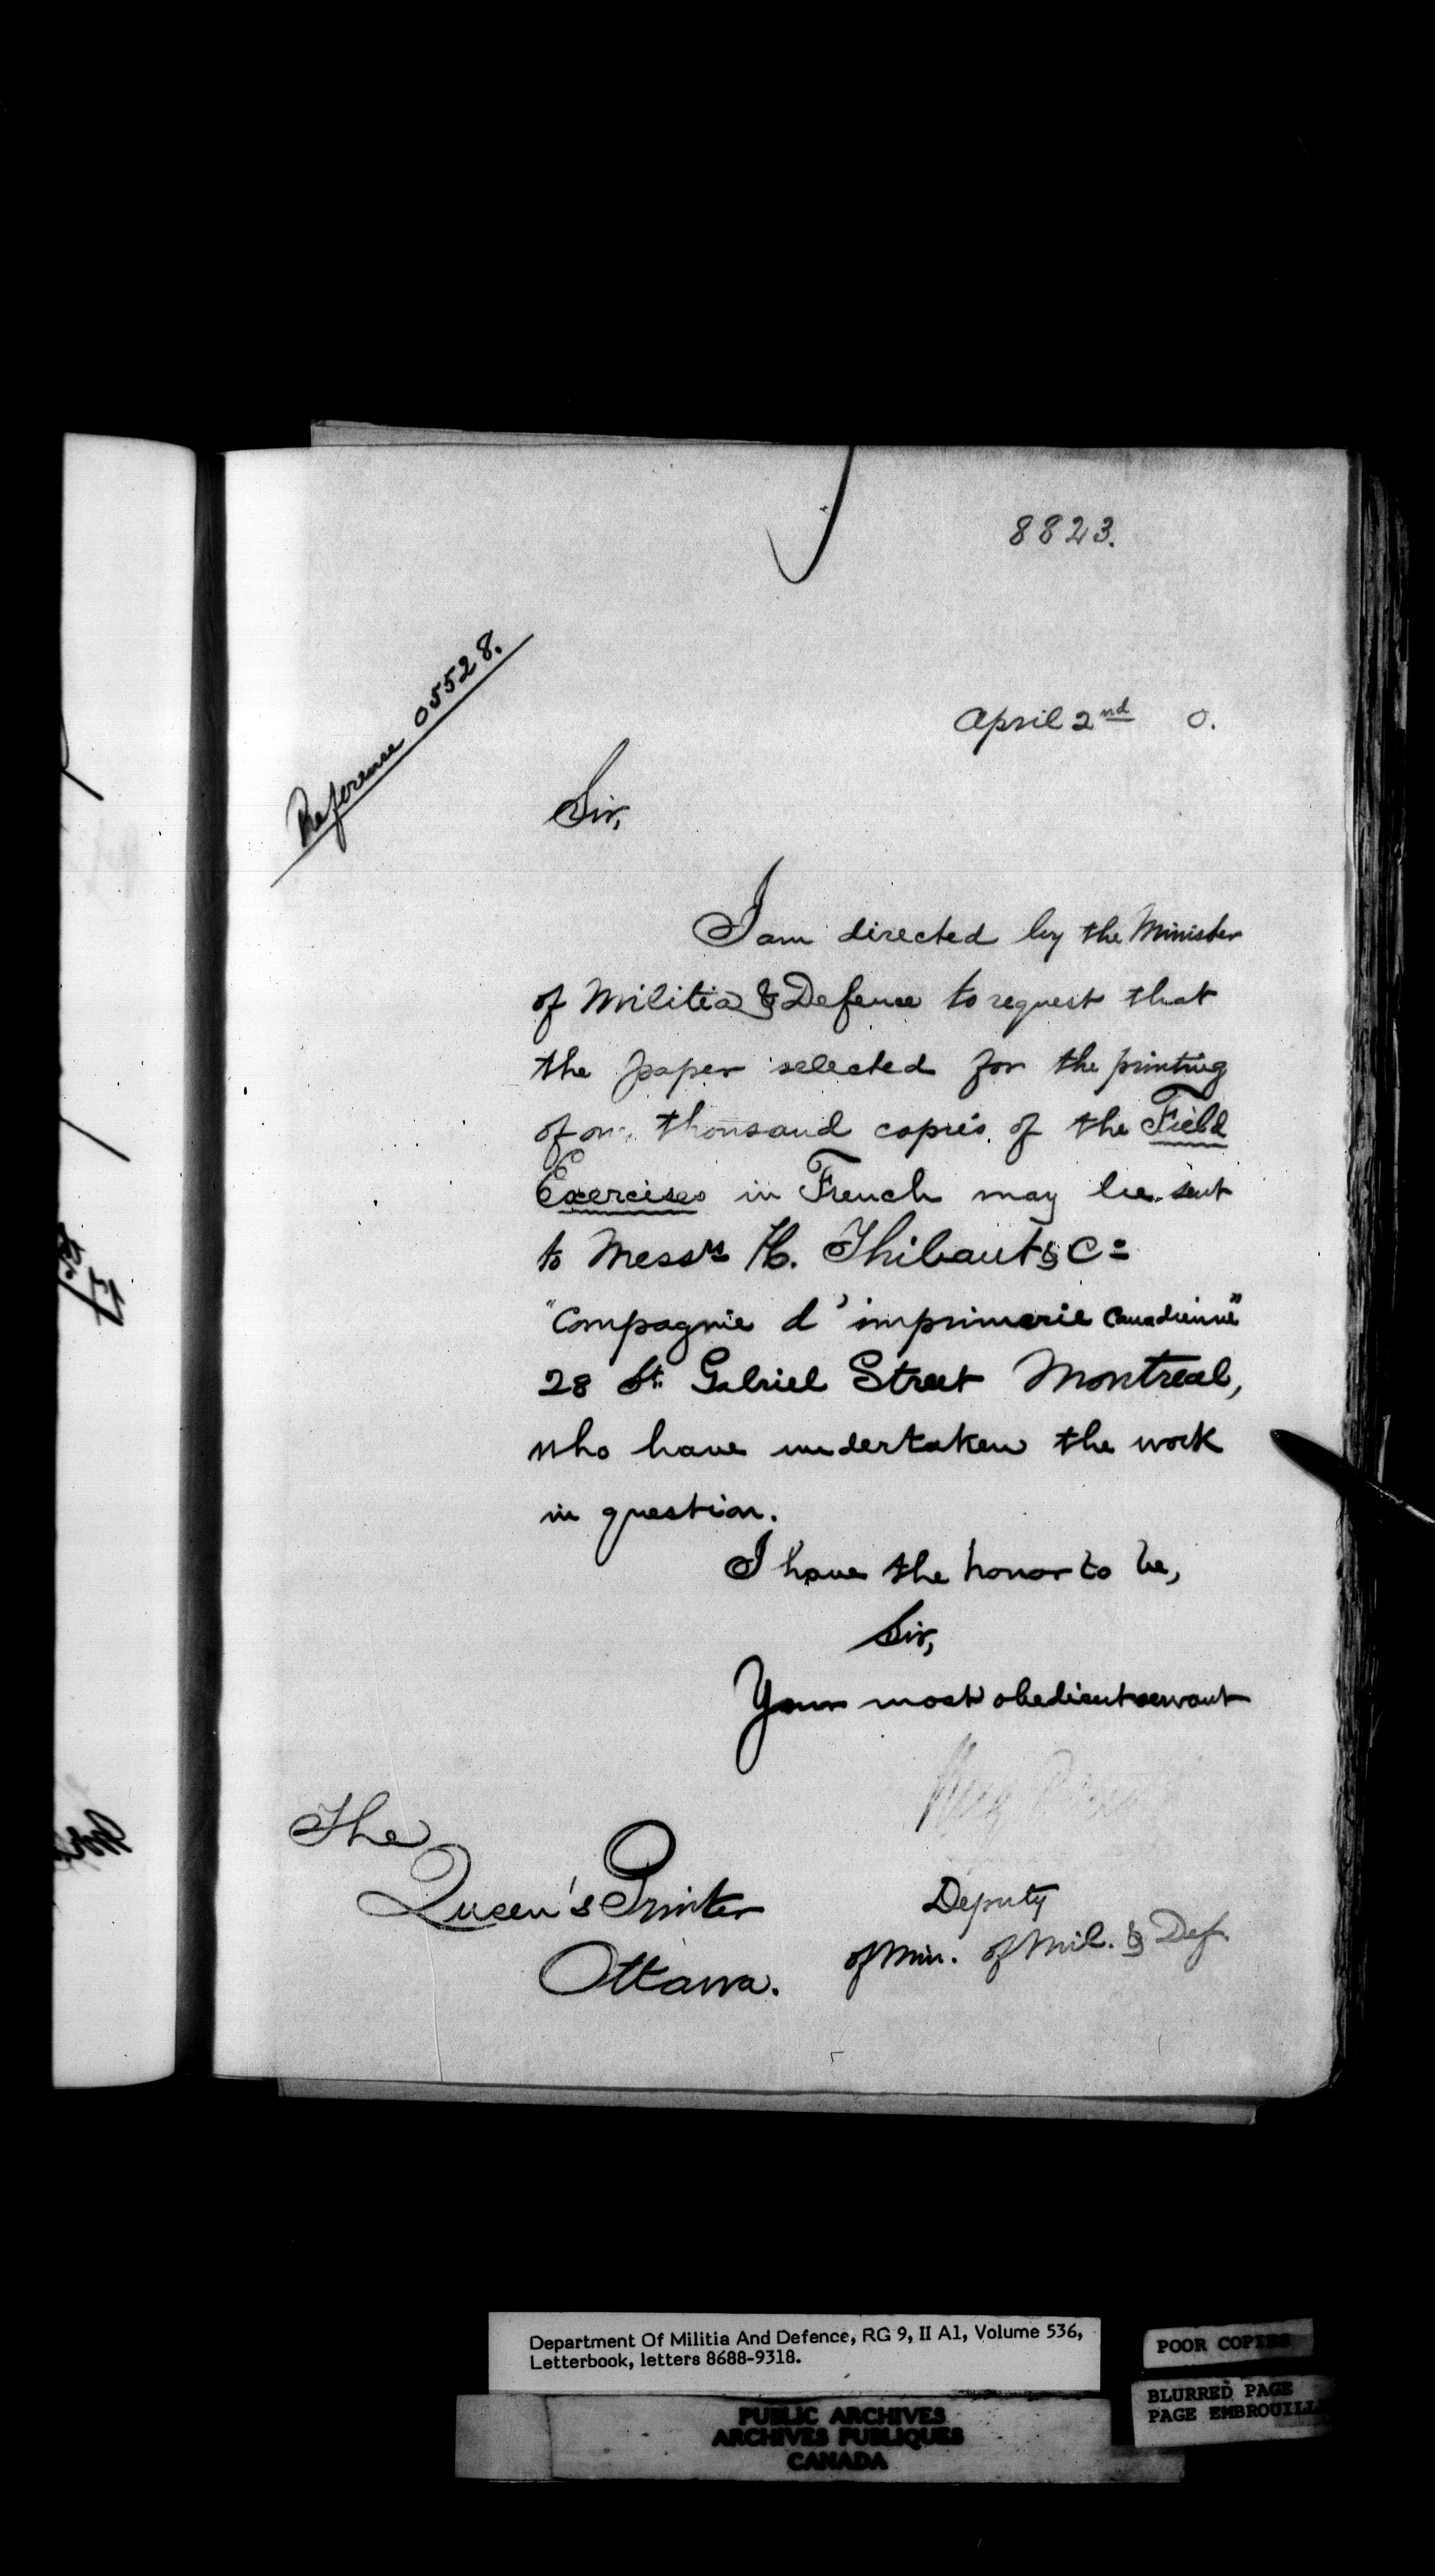 8823.
Reference 05528.
April 2nd 0.
Sir,
I am directed by the Minister
of Militia & Defence to request that
the paper selected for the printing
of one thousand copies of the Field
Exercises in French may be sent
to Messrs H. Thibaut & Co
"Compagnie d'imprimerie Canadienne"
28 St. Gabriel Street Montreal,
who have undertaken the work
in question.
I have the honor to be,
Sir,
Your most obedient servant
The
Queen's Printer
Ottawa.
Deputy
of Min. of Mil. & Def.
Department Of Militia And Defence, RG 9, II A1, Volume 536,
Letterbook, letters 8688-9318.
POOR COPIES
BLURRED PAGE
PAGE EMBROUILL
PUBLIC ARCHIVES
ARCHIVES PUBLIQUES
CANADA